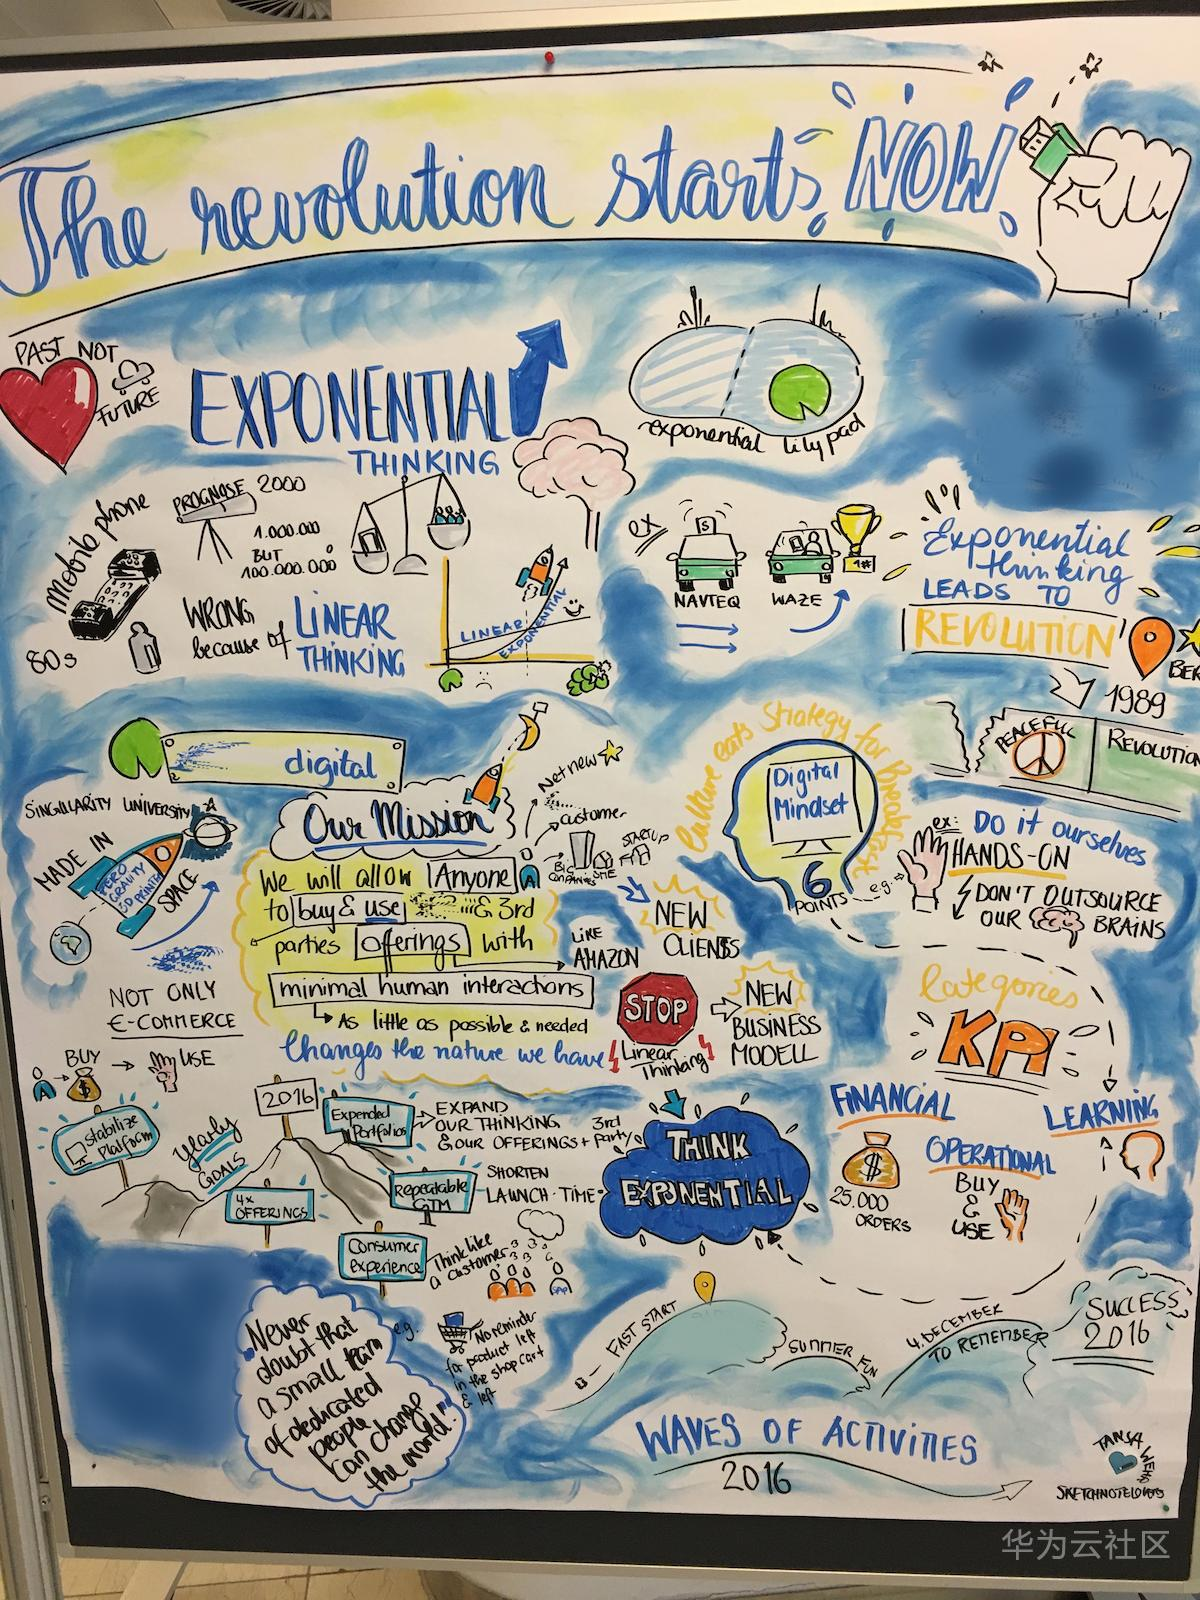 The revolution starts NOW
PAST NOT
FUTURE
EXPONENTIAL
THINKING
exponential lilypad
Mobile phone
80s
PROGNOSE 2000
1.000.000
BUT
100.000.000
WRONG
because of
LINEAR
THINKING
LINEAR
EXPONENTIAL
ex
S
NAVTEQ
WAZE
1#
Exponential
thinking
LEADS TO
REVOLUTION
BER
1989
PEACEFUL
REVOLUTION
digital
SINGULARITY UNIVERSITY
MADE IN
SPACE
ZERO
GRAVITY
3D PRINTER
NOT ONLY
E-COMMERCE
BUY
USE
$
Our Mission
We will allow Anyone
to buy & use & 3rd
parties offerings with
minimal human interactions
As little as possible & needed
Changes the nature we have
Net new
customer
BIG
COMPANIES
SME
STARTUP
LIKE
AMAZON
NEW
CLIENTS
STOP
Linear
Thinking
NEW
BUSINESS
MODELL
Culture eats Strategy for Breakfast
Digital
Mindset
6
POINTS
e.g.
ex:
Do it ourselves
HANDS-ON
DON'T OUTSOURCE
OUR BRAINS
Categories
KPI
FINANCIAL
$
25.000
ORDERS
OPERATIONAL
BUY
&
USE
LEARNING
stabilize
Platform
Yearly
GOALS
2016
4x
OFFERINGS
Expended
Portfolios
EXPAND
OUR THINKING
& OUR OFFERINGS + 3rd
party
Repeatable
GTM
SHORTEN
LAUNCH-TIME
Consumer
experience
Think like
a customer
SAP
THINK
EXPONENTIAL
e.g.
No reminder
for product left
in the shop cart
& left
"Never
doubt that
a small team
of dedicated
people
can change
the world."
FAST START
SUMMER FUN
4. DECEMBER
TO REMEMBER
SUCCESS
2016
WAVES OF ACTIVITIES
2016
TANJA
WEHR
SKETCHNOTELOVERS
华为云社区